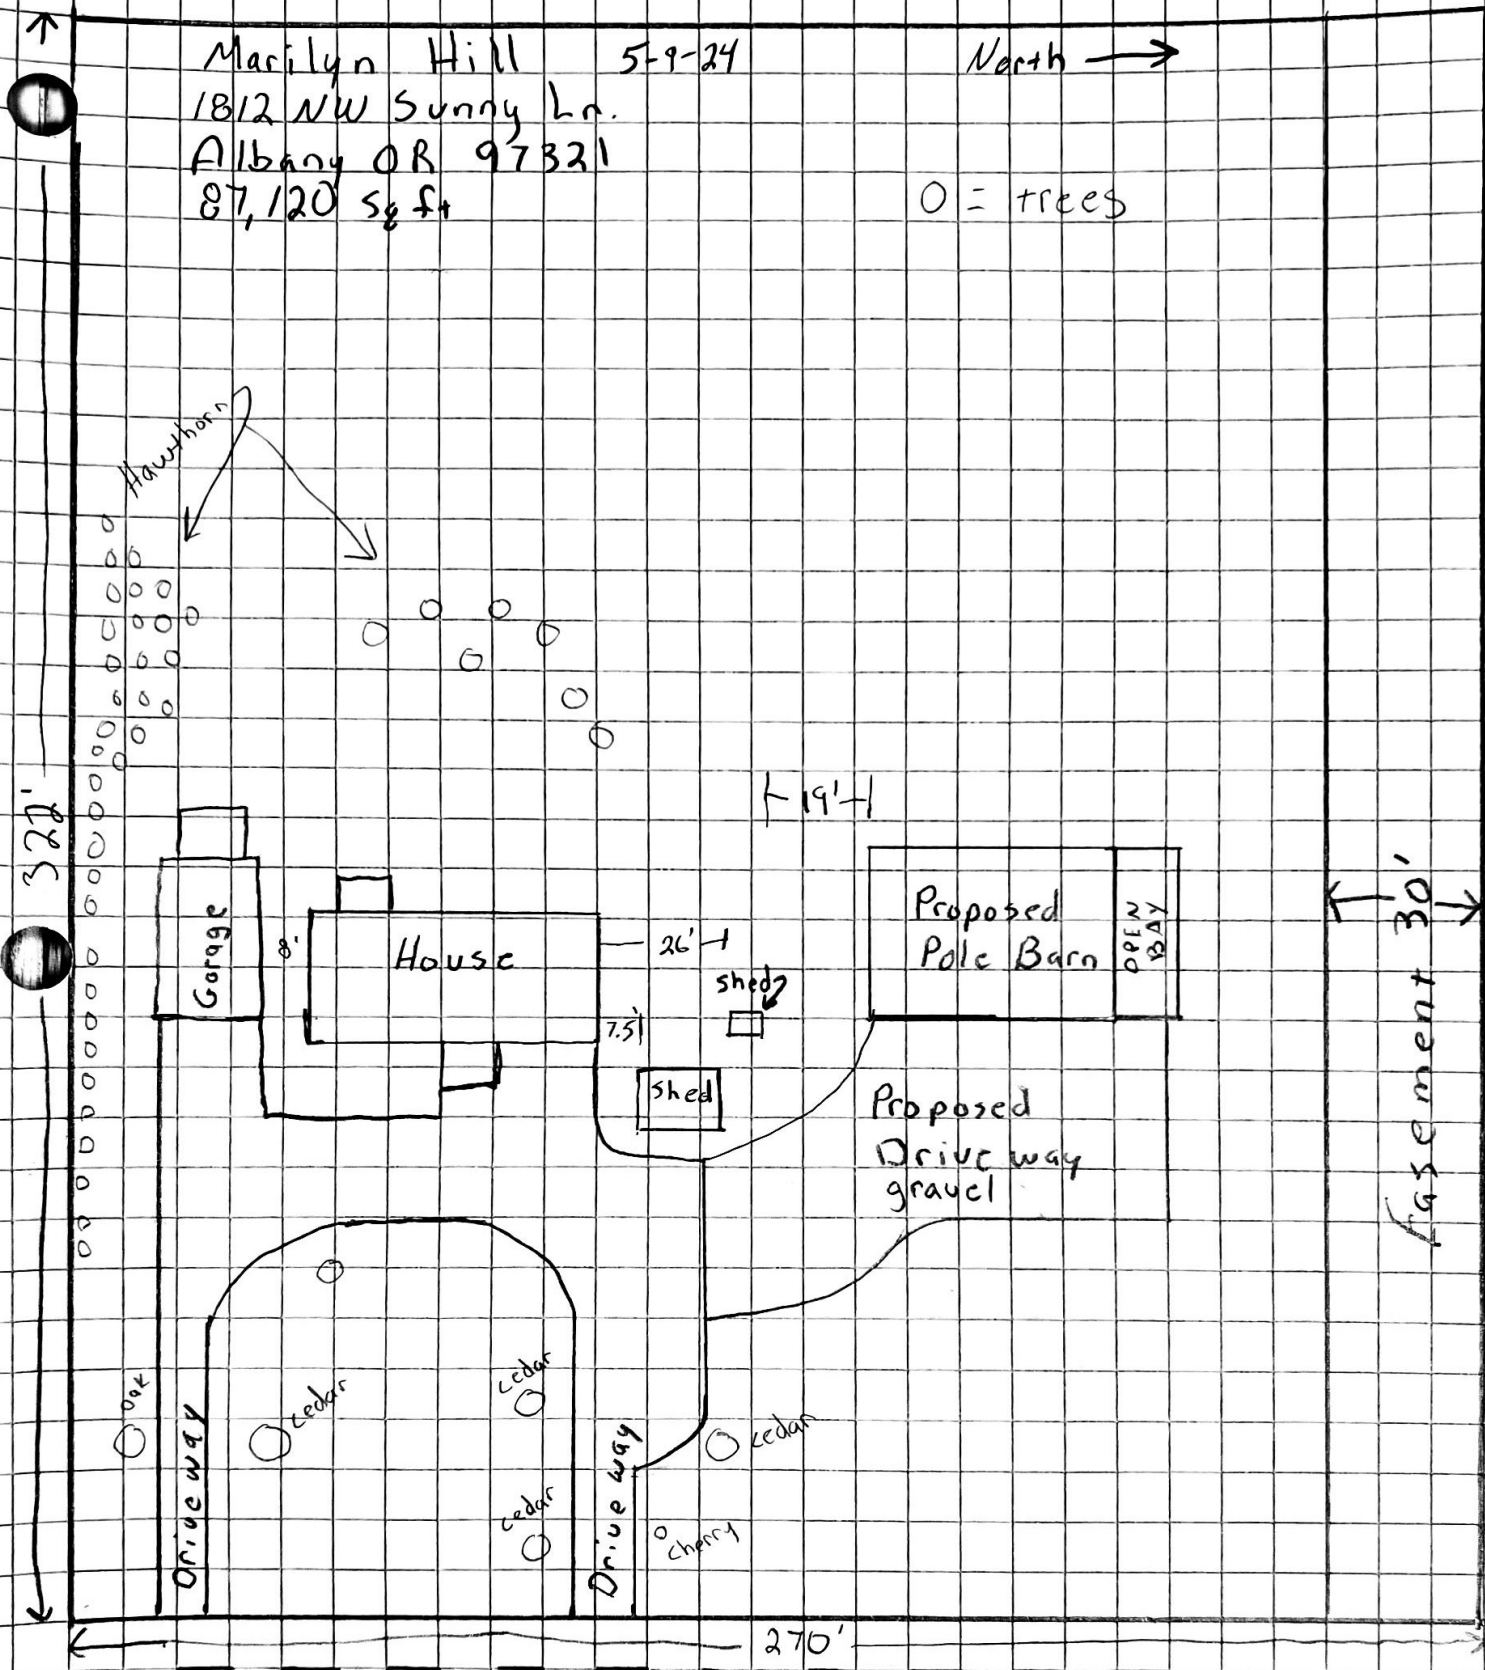 Marilyn Hill 5-9-24
North
1812 NW Sunny Ln.
Albany OR 97321
87,120 sq ft
O = trees
Hawthorn
322'
19'
Garage
8'
House
26'
shed
7.5'
shed
Proposed
Pole Barn
OPEN
BAY
Proposed
Drive way
gravel
Easement 30'
oak
Drive way
cedar
cedar
cedar
Drive way
cedar
cherry
270'